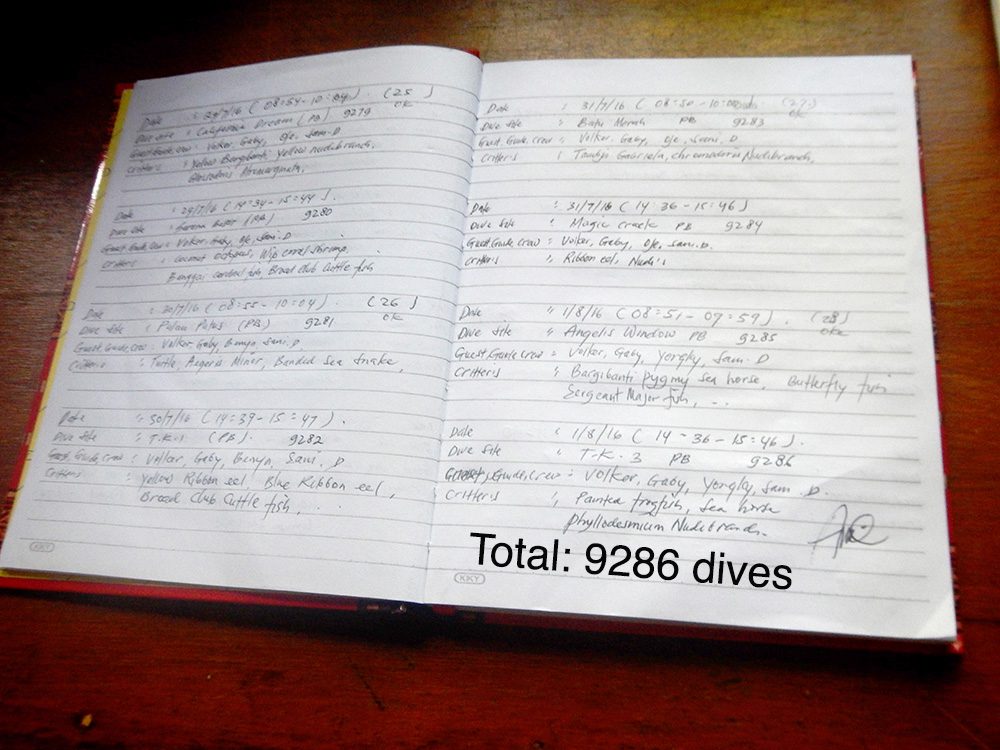 Date : 29/7/16 ( 08:54 - 10:04 ). ( 25 )
Dive site : California Dream ( PB ) 9279 OK
Guest, Guide, crew : Volker, Gaby, Oje, Sam. D
Critters : Yellow Bargibanti, Yellow nudibranch,
Date : 29/7/16 ( 14:34 - 15:44 ).
Dive site : (PB) 9280
Guest, Guide, crew : Volker, Gaby, Oje, Sam. D
Critters : Coconut octopus, Wip coral shrimp,
Banggai cardinal fish, Broad club Cuttle fish
Date : 30/7/16 ( 08:55 - 10:04 ). ( 26 )
Dive site : Pulau Putus (PB) 9281 OK
Guest, Guide, crew : Volker, Gaby, Benyn, Sam. D
Critters : Turtle, Angeris Minor, Banded Sea Snake,
Date : 30/7/16 ( 14:39 - 15:47 ).
Dive site : T.K.1 (PB). 9282
Guest, Guide, crew : Volker, Gaby, Benyn, Sam. D
Critters : Yellow Ribbon eel, Blue Ribbon eel,
Broad Club Cuttle fish, . . .
KKY
Date : 31/7/16 ( 08:50 - 10:00 ). ( 27 )
Dive site : Batu Merah PB 9283 OK
Guest, Guide, crew : Volker, Gaby, Oje, Sam. D
Critters : Gabriela, chromodoris Nudibranch,
Date : 31/7/16 ( 14:36 - 15:46 )
Dive site : Magic crack PB 9284
Guest, Guide, crew : Volker, Gaby, Oje, Sam. D.
Critters : Ribbon eel, Nudi's
Date : 1/8/16 ( 08:51 - 09:59 ). ( 28 )
Dive site : Angelis Window PB 9285 OK
Guest, Guide, crew : Volker, Gaby, Yongky, Sam. D
Critters : Bargibanti pygmy sea horse, Butterfly fish
Sergeant Major fish, . . .
Date : 1/8/16 ( 14:36 - 15:46 ).
Dive site : T.K. 3 PB 9286
Guest, Guide, crew : Volker, Gaby, Yongky, Sam. D.
Critters : Painted frogfish, Sea horse
Phyllodesmium Nudibranch.
Total: 9286 dives
KKY